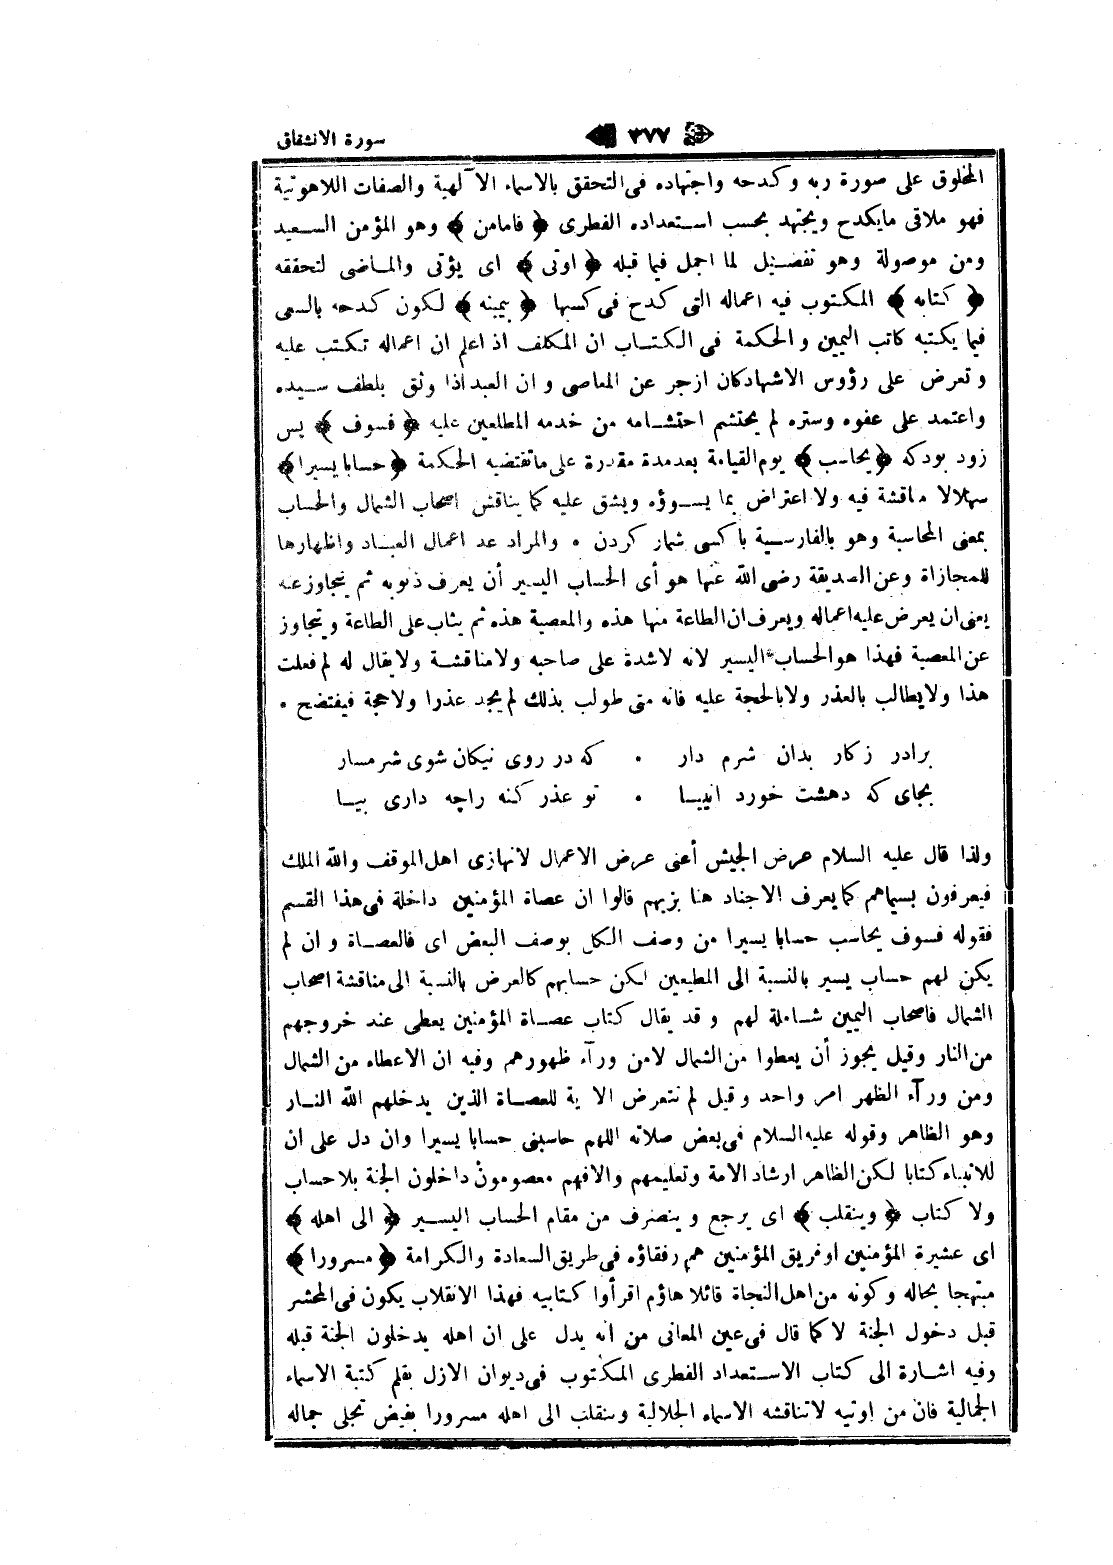 سورة الانشقاق ٣٧٧
المخلوق على صورة ربه وكدحه واجتهاده فى التحقق بالاسماء الآلهية والصفات اللاهوتية
فهو ملاقى مايكدح ويجتهد بحسب استعداده الفطرى ﴿ فامامن ﴾ وهو المؤمن السعيد
ومن موصولة وهو تفصيل لما اجمل فيما قبله ﴿ اوتى ﴾ اى يؤتى والماضى لتحققه
﴿ كتابه ﴾ المكتوب فيه اعماله التى كدح فى كسبها ﴿ بيمينه ﴾ لكون كدحه بالسعى
فيما يكتبه كاتب اليمين والحكمة فى الكتاب ان المكلف اذ اعلم ان اعماله تكتب عليه
وتعرض على رؤوس الاشهادكان ازجر عن المعاصى وان العبداذا وثق بلطف سيده
واعتمد على عفوه وستره لم يحتشم احتشامه من خدمه المطلعين عليه ﴿ فسوف ﴾ پس
زود بودكه ﴿ يحاسب ﴾ يوم القيامة بعدمدة مقدرة على ماتقتضيه الحكمة ﴿ حسابا يسيرا ﴾
سهلالا مناقشة فيه ولا اعتراض بما يسوؤه ويشق عليه كما يناقش اصحاب الشمال والحساب
بمعنى المحاسبة وهو بالفارسية باكسى شمار كردن • والمراد عد اعمال العباد واظهارها
للمجازاة وعن الصديقة رضى الله عنها هو أى الحساب اليسير أن يعرف ذنوبه ثم يتجاوز عنه
يعنى ان يعرض عليه اعماله ويعرف ان الطاعة منها هذه والمعصية هذه ثم يثاب على الطاعة ويتجاوز
عن المعصية فهذا هو الحساب اليسير لانه لاشدة على صاحبه ولامناقشة ولايقال له لم فعلت
هذا ولايطالب بالعذر ولابالحجة عليه فانه متى طولب بذلك لم يجد عذرا ولاحجة فيفتضح •
برادر زكار بدان شرم دار • كه در روى نيكان شوى شرمسار
بجاى كه دهشت خورد انبيا • تو عذر كنه راچه دارى بيا
ولذا قال عليه السلام عرض الجيش أعنى عرض الاعمال لانهازى اهل الموقف والله الملك
فيعرفون بسيماهم كما يعرف الاجناد هنا بزيهم قالوا ان عصاة المؤمنين داخلة فى هذا القسم
فقوله فسوف يحاسب حسابا يسيرا من وصف الكل بوصف البعض اى فالعصاة وان لم
يكن لهم حساب يسير بالنسبة الى المطيعين لكن حسابهم كالعرض بالنسبة الى مناقشة اصحاب
الشمال فاصحاب اليمين شاملة لهم وقد يقال كتاب عصاة المؤمنين يعطى عند خروجهم
من النار وقيل يجوز أن يعطوا من الشمال لامن ورآء ظهورهم وفيه ان الاعطاء من الشمال
ومن ورآء الظهر امر واحد وقيل لم تتعرض الآية للعصاة الذين يدخلهم الله النار
وهو الظاهر وقوله عليه السلام فى بعض صلاته اللهم حاسبنى حسابا يسيرا وان دل على ان
للانبياء كتابا لكن الظاهر ارشاد الامة وتعليمهم والافهم معصومون داخلون الجنة بلاحساب
ولا كتاب ﴿ وينقلب ﴾ اى يرجع وينصرف من مقام الحساب اليسير ﴿ الى اهله ﴾
اى عشيرة المؤمنين او فريق المؤمنين هم رفقاؤه فى طريق السعادة والكرامة ﴿ مسرورا ﴾
مبتهجا بحاله وكونه من اهل النجاة قائلا هاؤم اقرأوا كتابيه فهذا الانقلاب يكون فى المحشر
قبل دخول الجنة لاكما قال فى عين المعانى من انه يدل على ان اهله يدخلون الجنة قبله
وفيه اشارة الى كتاب الاستعداد الفطرى المكتوب فى ديوان الازل بقلم كتبة الاسماء
الجمالية فان من اوتيه لاتناقشه الاسماء الجلالية وينقلب الى اهله مسرورا بفيض تجلى جماله